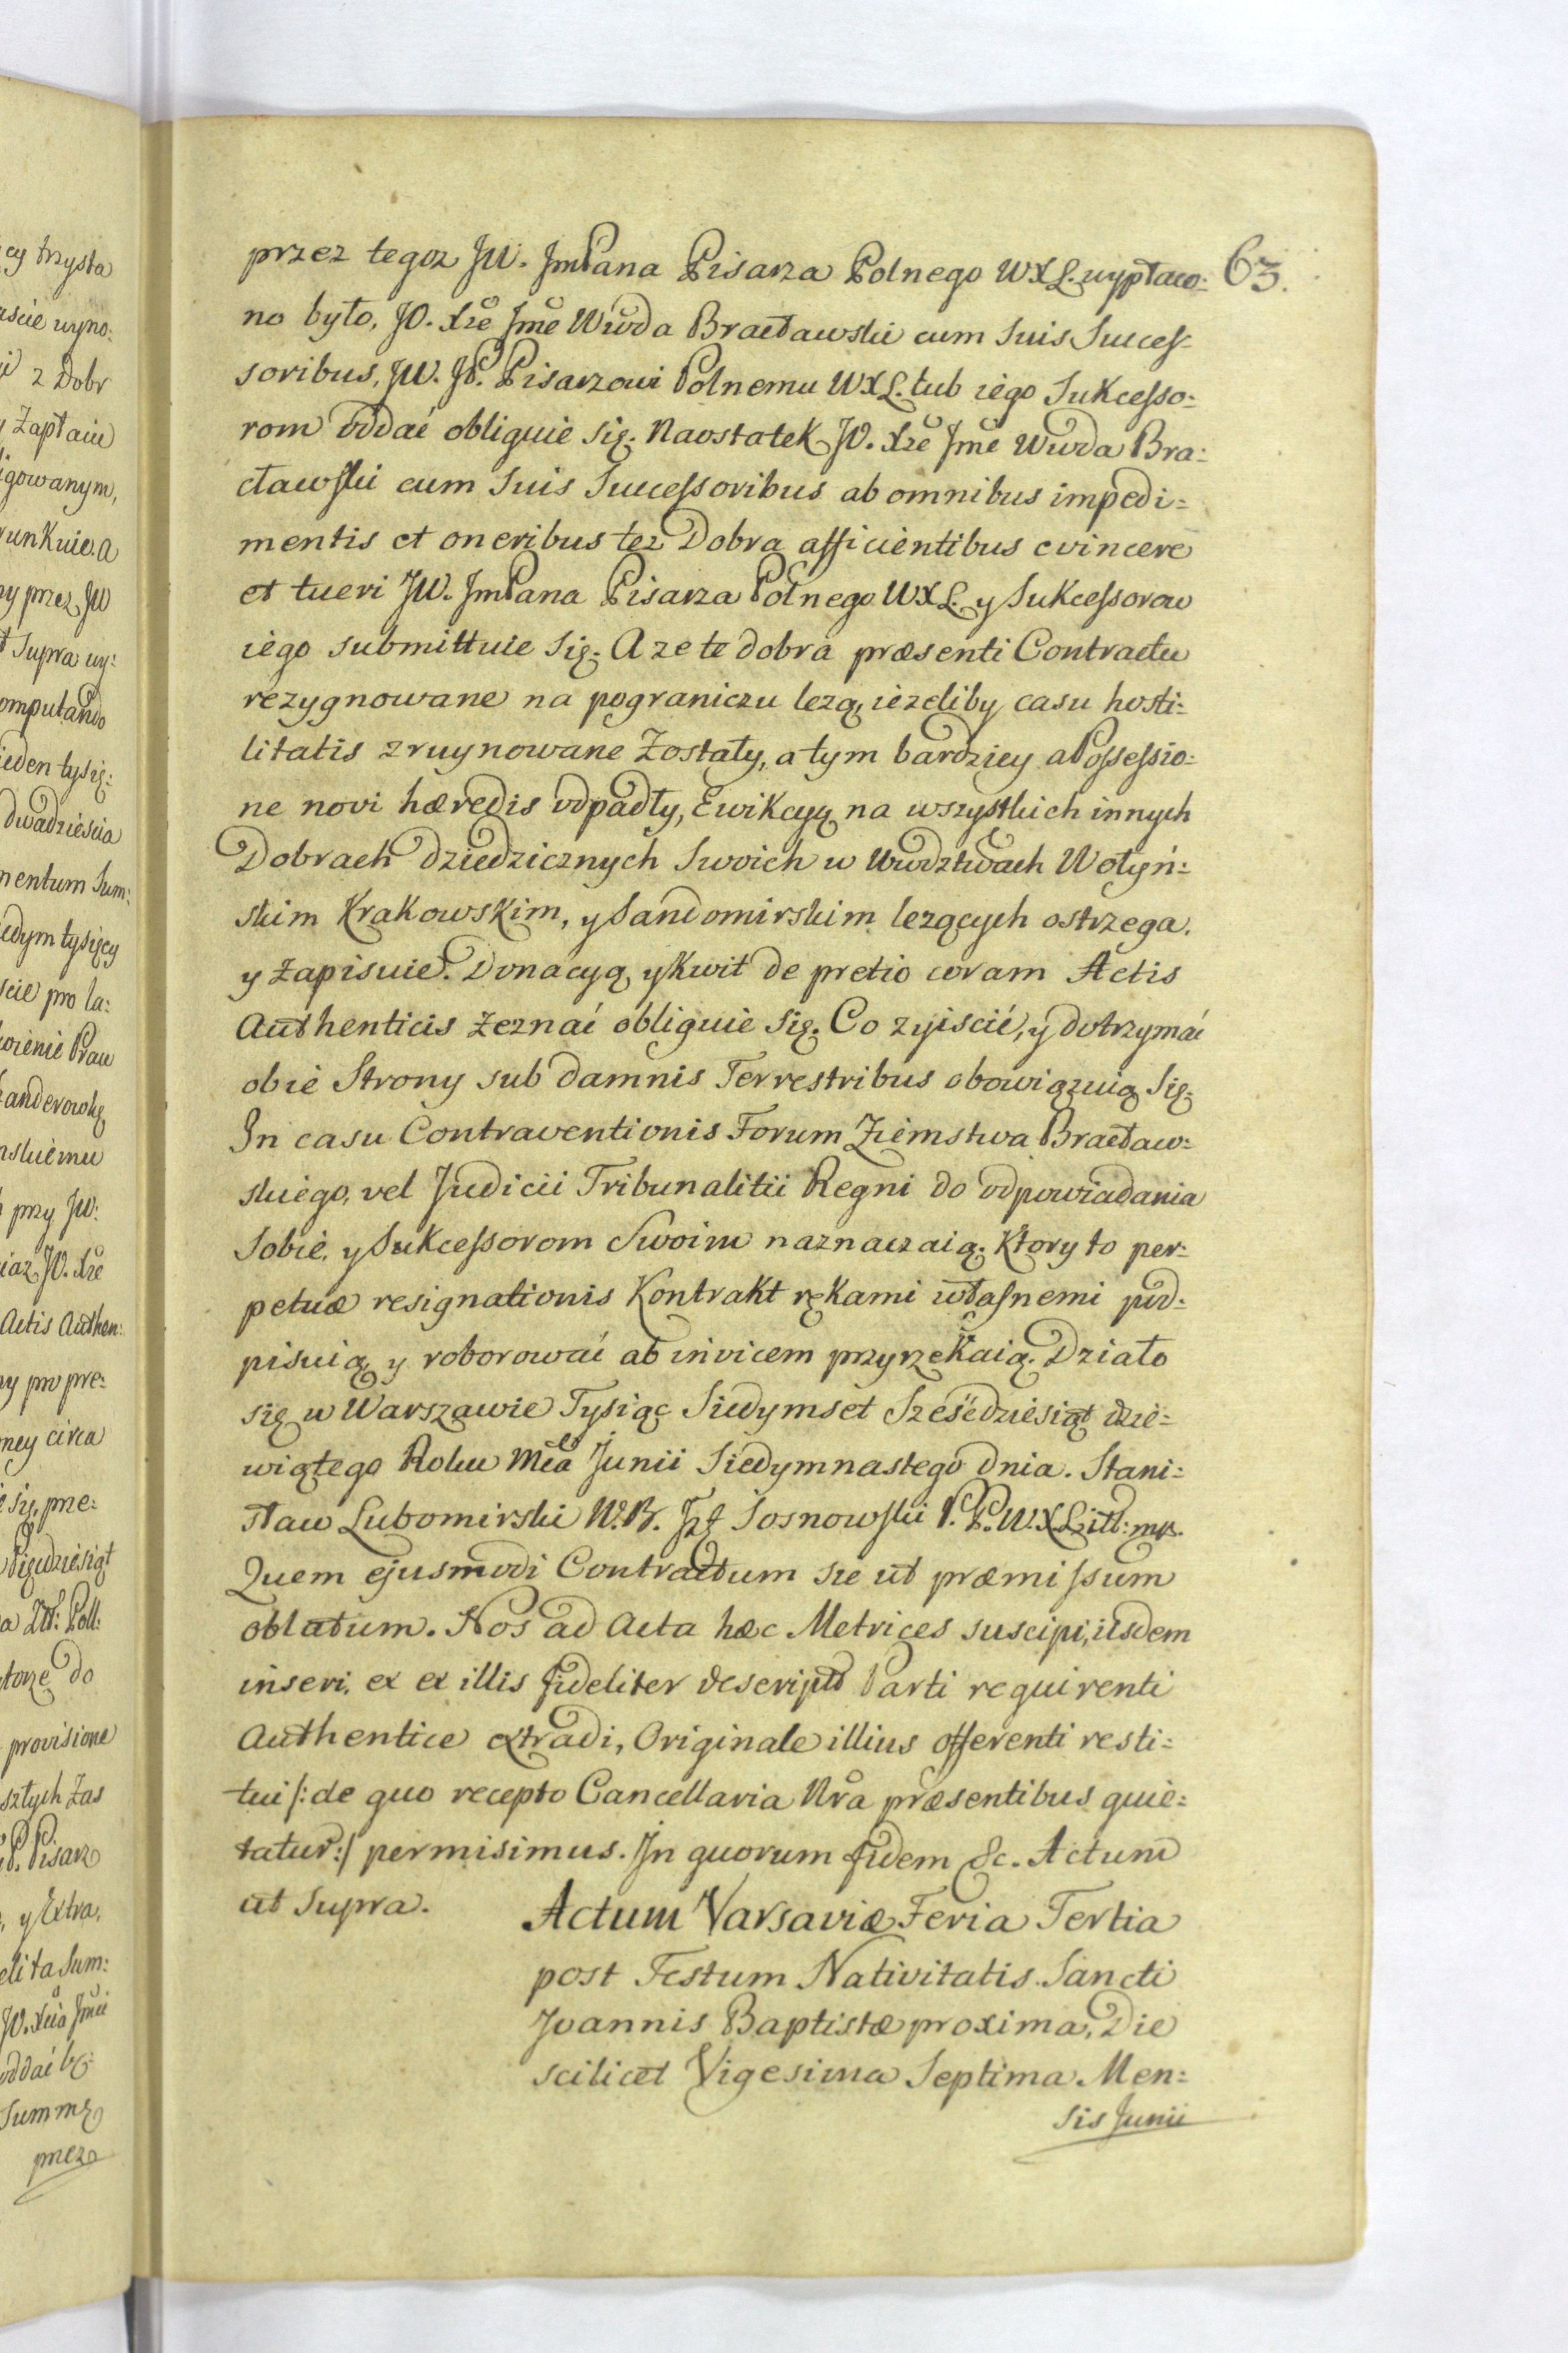 63.
przez tegoz JW. JmPana Pisarza Polnego WXL. wypłaco:
no było, JO. Xże Jmć Wwda Bracławski cum Suis Succes-
soribus, JW. JP. Pisarzowi Polnemu WXL. lub iego Sukcesso:
rom oddać obliguie się. Naostatek JO. Xże Jmć Wwda Bra:
cławski cum Suis Successoribus ab omnibus impedi=
mentis et oneribus tez Dobra afficientibus evincere
et tueri JW. JmPana Pisarza Polnego WXL. y Sukcessorow
iego submittuie Się. A ze te dobra præsenti Contractu
rezygnowane na pograniczu lezą, iezeliby casu hosti=
litatis zruynowane Zostały, a tym bardziey a Possessio:
ne novi hæredis odpadły, Ewikcyą na wszystkich innych
Dobrach dziedzicznych Swoich w Wwdztwach Wołyń:
skim Krakowskim, y Sandomirskim lezących ostrzega,
y Zapisuie. Donacyą y Kwit de pretio coram Actis
Authenticis Zeznać obliguie Się. Co zyiścić, y dotrzymać
obie Strony sub damnis Terrestribus obowiązuią Się.
In casu Contraventionis Forum Ziemstwa Bracław:
skiego, vel Judicii Tribunalitii Regni do odpowiadania
Sobie, y Sukcessorom Swoim naznaczaią. Ktory to per:
petuæ resignationis Kontrakt rękami własnemi pod:
pisuią y roborować ab invicem przyrzekaią. Działo
się w Warszawie Tysiąc Siedymset Sześćdziesiąt dzie=
wiątego Roku Mca Junii Siedymnastego dnia. Stani:
sław Lubomirski W.B. Jzf Sosnowski P.P.W.X.Litt: mp.
Quem ejusmodi Contractum sic ut præmissum
oblatum. Nos ad Acta hæc Metrices suscipi, iisdem
inseri, ex et illis fideliter descriptũ Parti requirenti
Authentice extradi, Originale illius offerenti resti=
tui /: de quo recepto Cancellaria Nra præsentibus quie=
tatur :/ permisimus. In quorum fidem &c. Actum
ut Supra.
Actum Varsaviæ Feria Tertia
post Festum Nativitatis Sancti
Joannis Baptistæ proxima, Die
scilicet Vigesima Septima Men=
sis Junii
cy trzysta
uscie wyno:
z Dobr
y Zapłaiu
ligowanym,
runkuie. A
ny przez JW
t Supra wy:
omputando
ieden tysią:
dwadziescia
mentum Sum:
iedym tysięcy
scie pro la:
Praw
anderowkę
nskiemu
przy JW:
iaz JO. Xże
Actis Authen:
ny pro pre:
ney circa
Się, prze:
Pięcdziesiąt
a Złł: Poll:
torze do
provisione
szłych Zas
JP. Pisarz
, y Extra,
elita Sum:
JO. Xcia Jmci
oddać bę:
Summę
przez